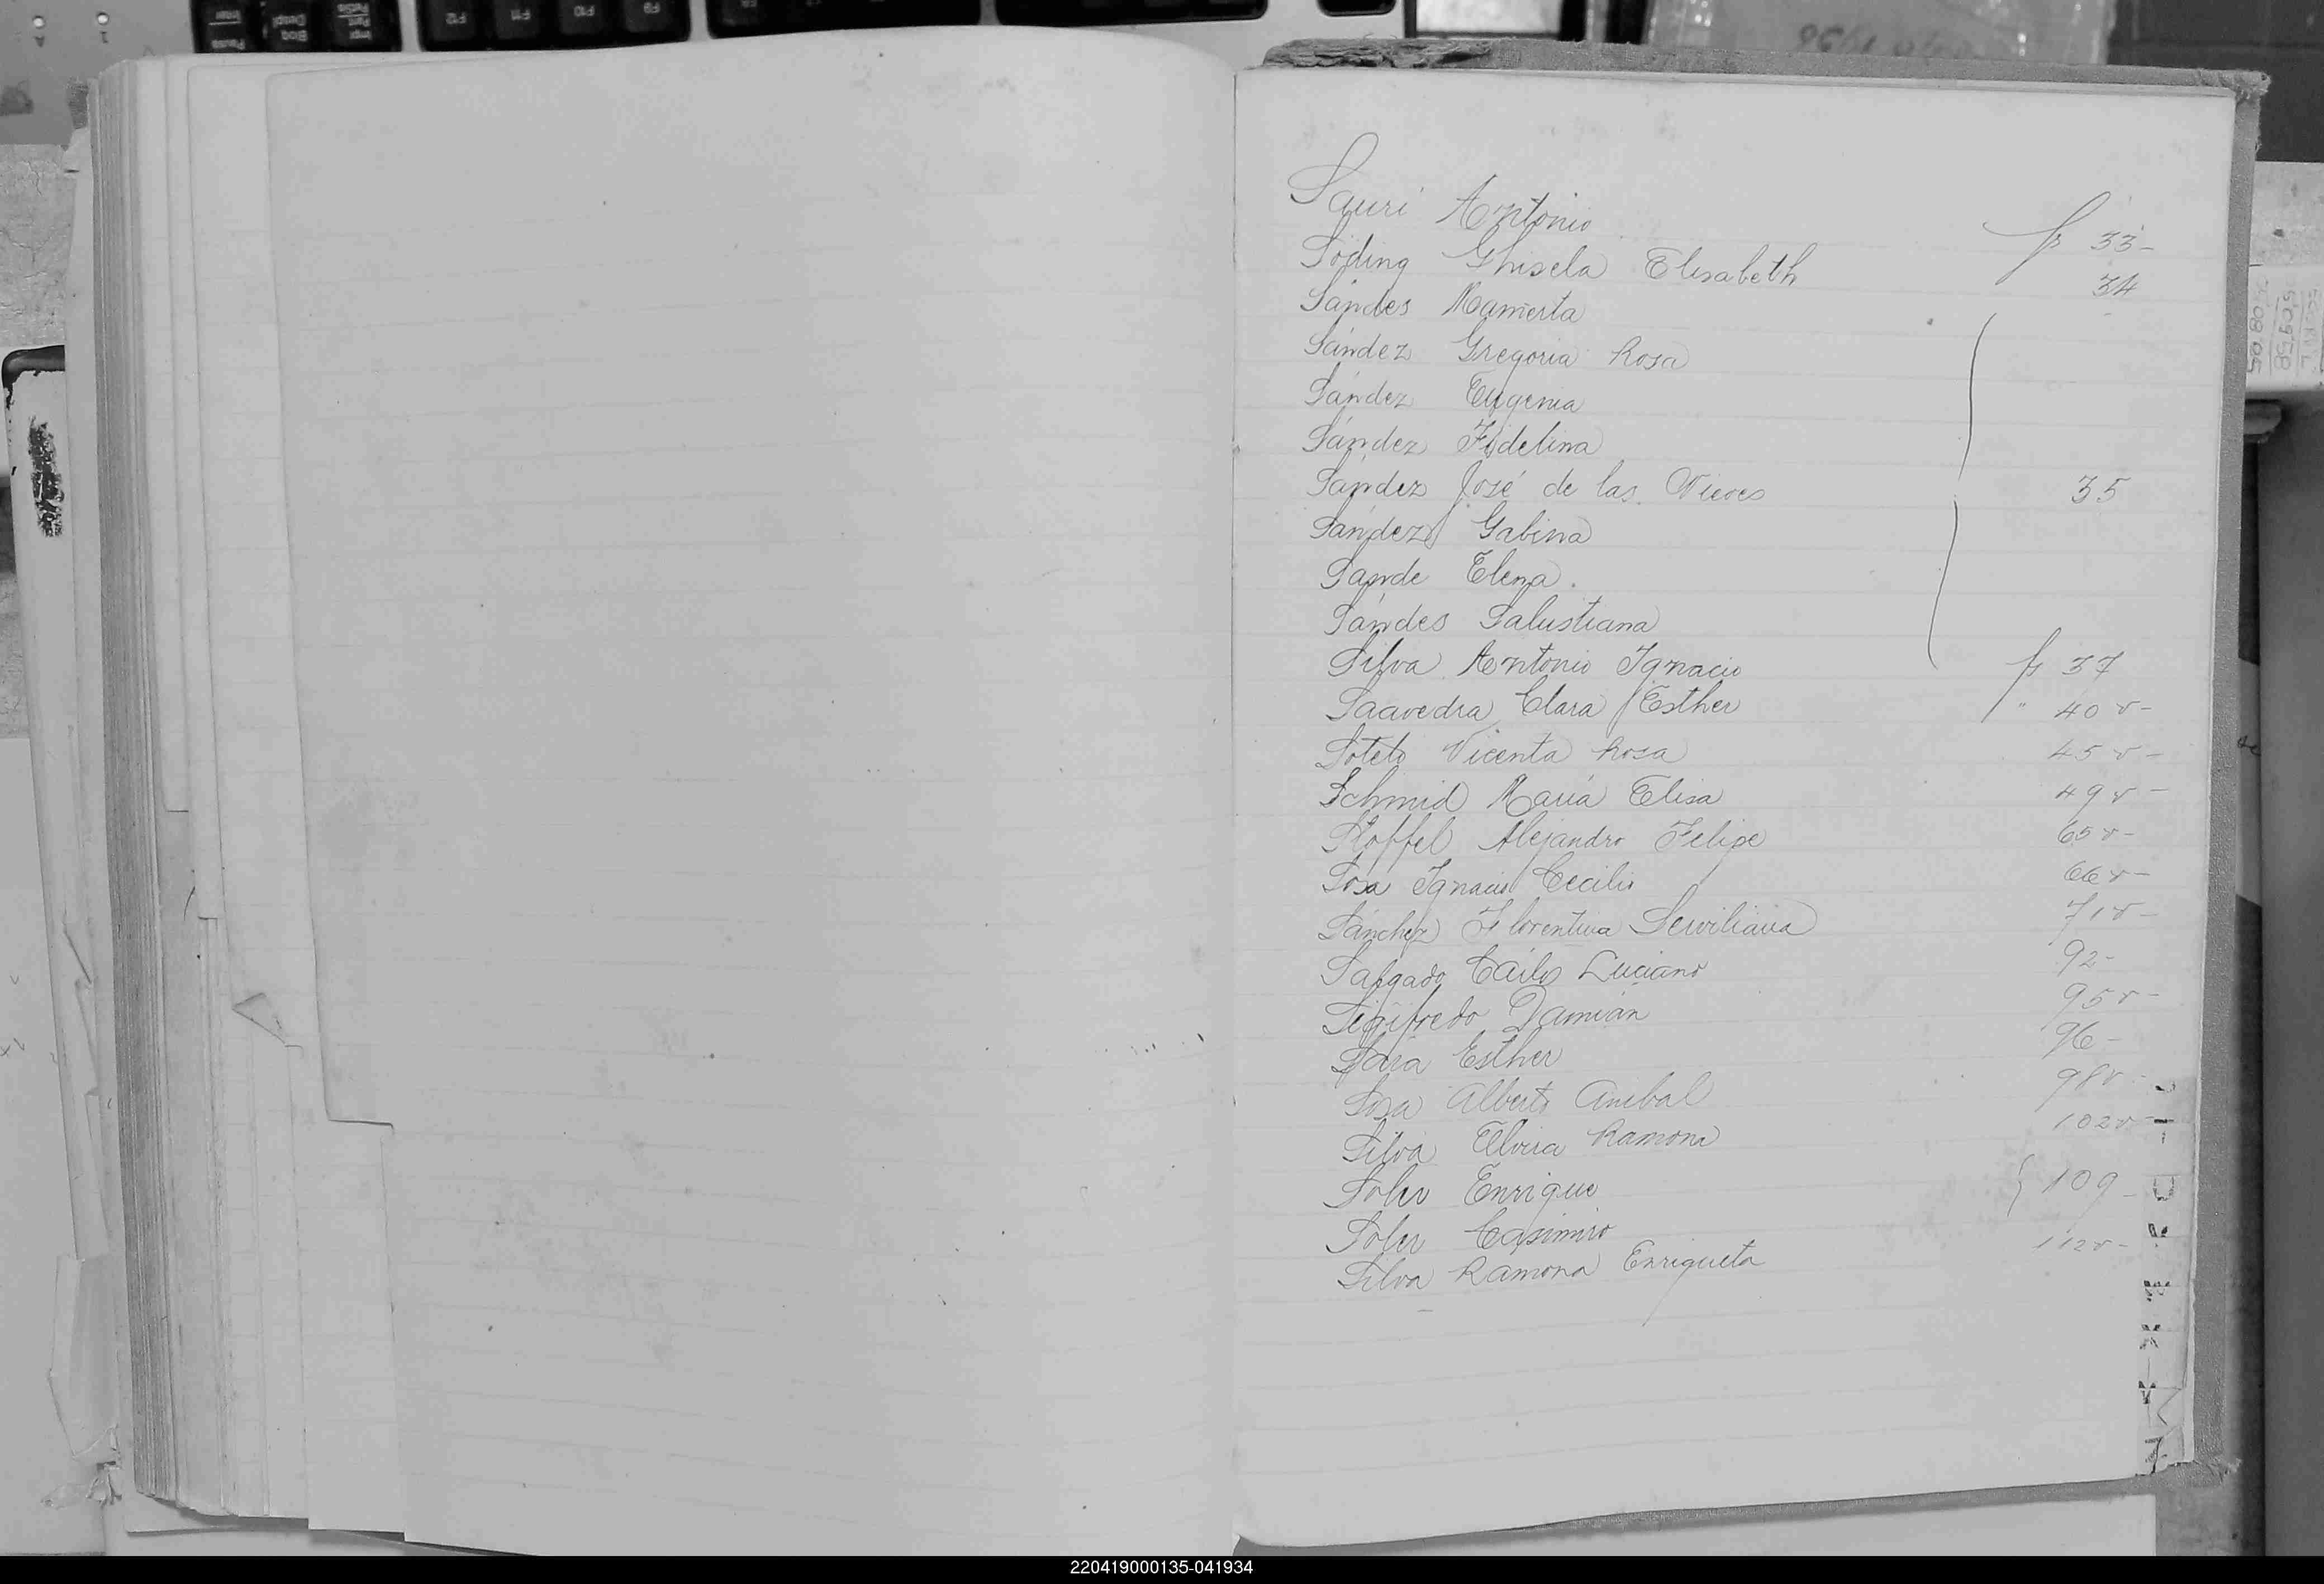 Sauri Antonio fs 33-
Söding Ghisela Elisabeth 34
Sándes Mamerta
Sández Gregoria Rosa
Sández Eugenia
Sández Fidelina
Sández José de las Nieves 35
Sández Gabina
Sande Elena.
Sándes Salustiana
Silva Antonio Ignacio fs 37
Saavedra Clara Esther " 40 v-
Sotelo Vicenta Rosa 45 v-
Schmid María Elisa 49 v-
Stoffel Alejandro Felipe 65 v-
Sosa Ignacio Cecilio 66 v-
Sánchez Florentina Serviliana 71 v-
Salgado Carlos Luciano 92-
Sigifredo Damián 95 v-
Sara Esther 96-
Sosa Alberto Anibal 98v-
Silva Elvira Ramona 102v-
Soler Enrique } 109-
Soler Casimiro
Silva Ramona Enriqueta 112v-
220419000135-041934